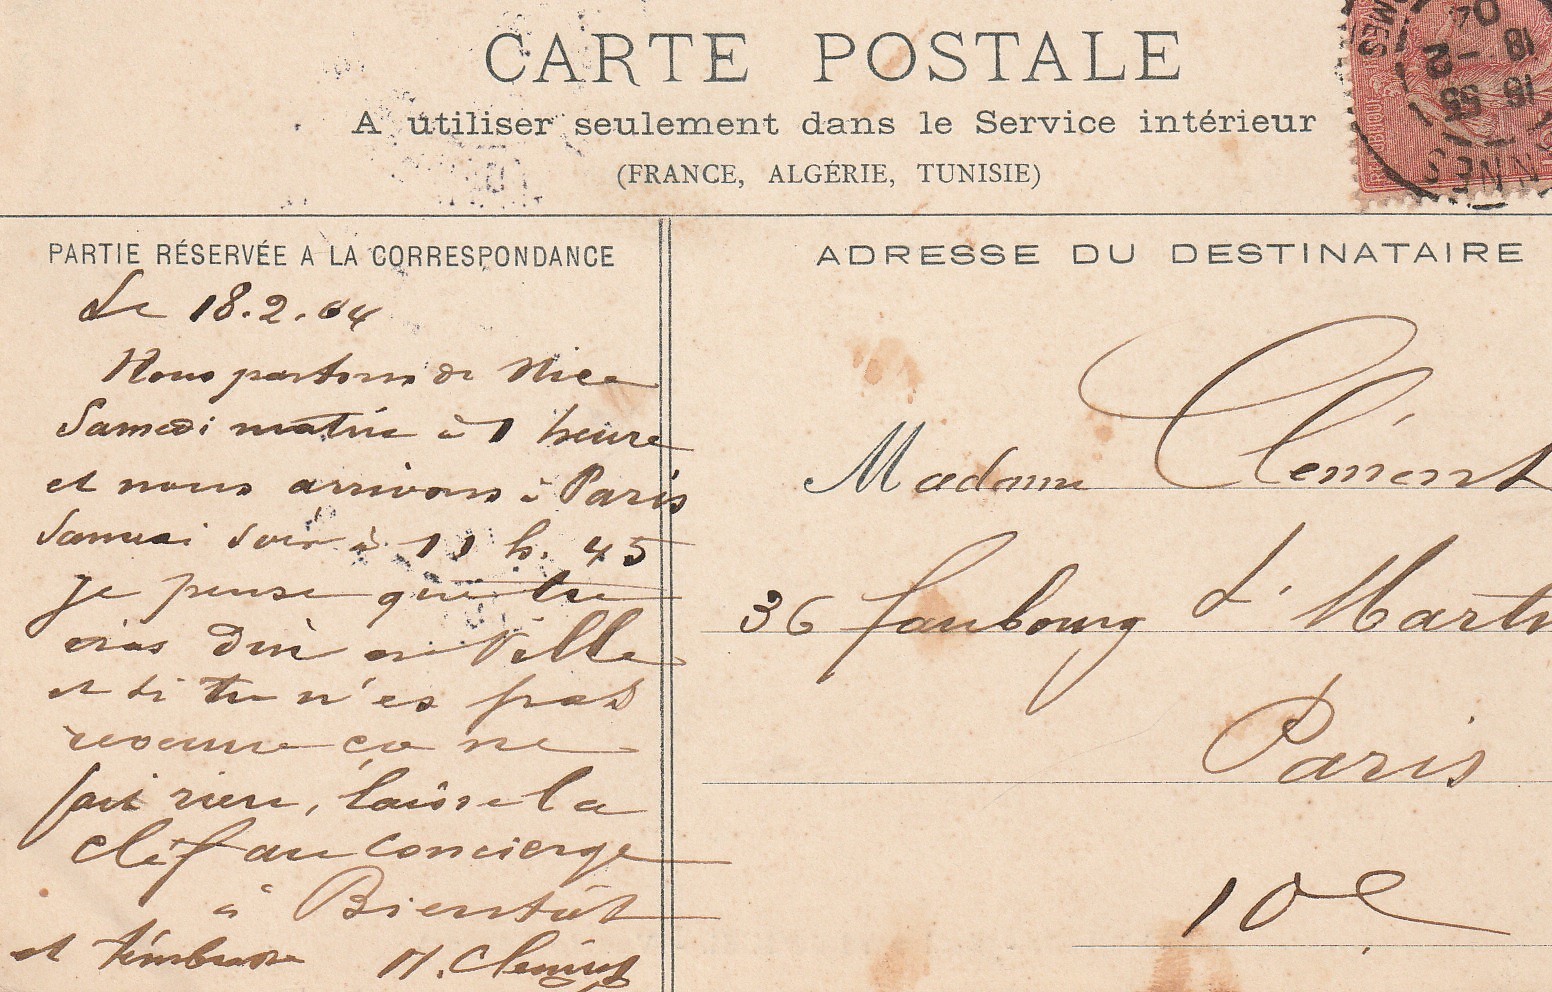 CARTE POSTALE
A utiliser seulement dans le Service intérieur
(FRANCE, ALGÉRIE, TUNISIE)
PARTIE RÉSERVÉE A LA CORRESPONDANCE
Le 18.2.04
Nous partons de Nice
Samedi matin à 1 heure
et nous arrivons à Paris
Samedi soir à 11 h. 45
je pense que tu
iras din en Ville
et si tu n'es pas
revenue ça ne
fait rien, laisse la
clef au concierge
à Bientôt
et H. Clément
ADRESSE DU DESTINATAIRE
Madame Clément
36 faubourg St Martin
Paris
10e
18 - 2
04